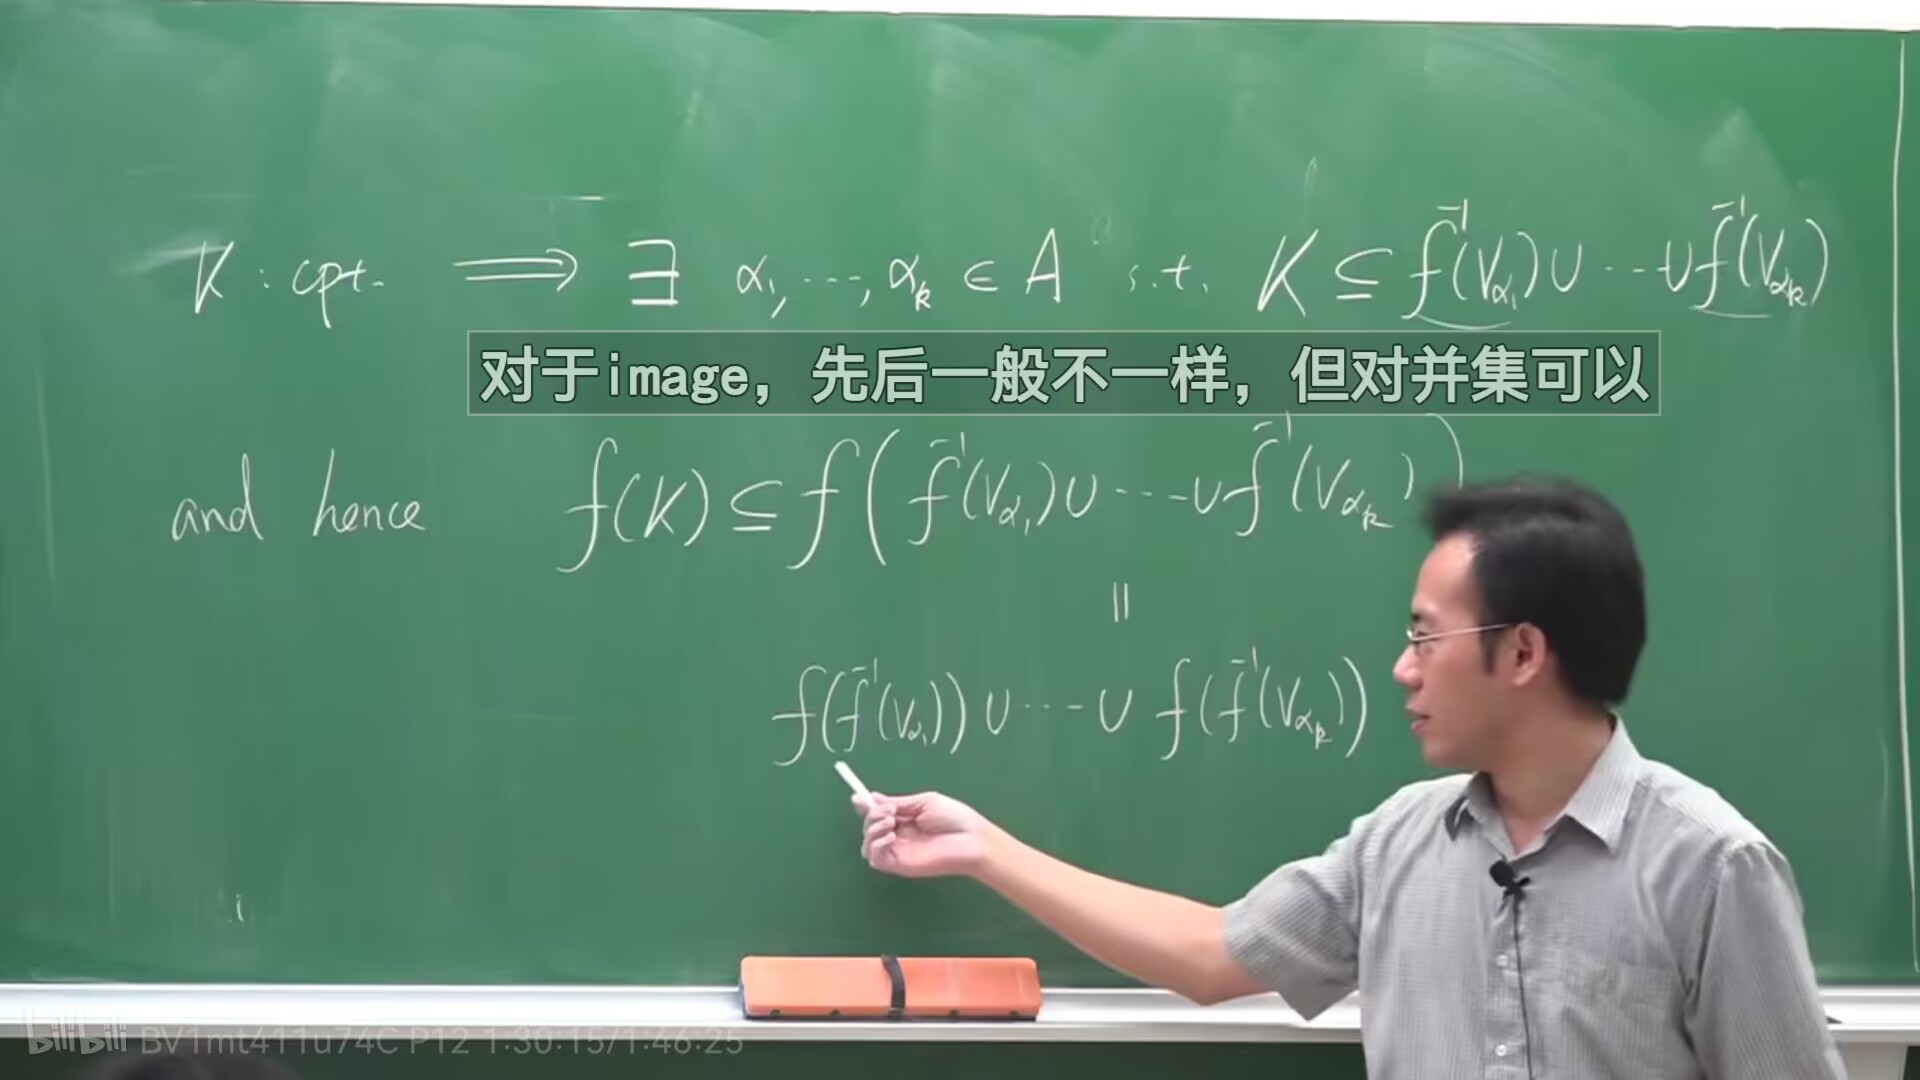 K : cpt. ⟹ ∃ α₁, ⋯, αₖ ∈ A s.t. K ⊆ f⁻¹(V_α₁) ∪ ⋯ ∪ f⁻¹(V_αₖ)
对于image，先后一般不一样，但对并集可以
and hence f(K) ⊆ f( f⁻¹(V_α₁) ∪ ⋯ ∪ f⁻¹(V_αₖ) )
||
f(f⁻¹(V_α₁)) ∪ ⋯ ∪ f(f⁻¹(V_αₖ))
bilibili BV1mt411u74C P12 1:30:15/1:46:25